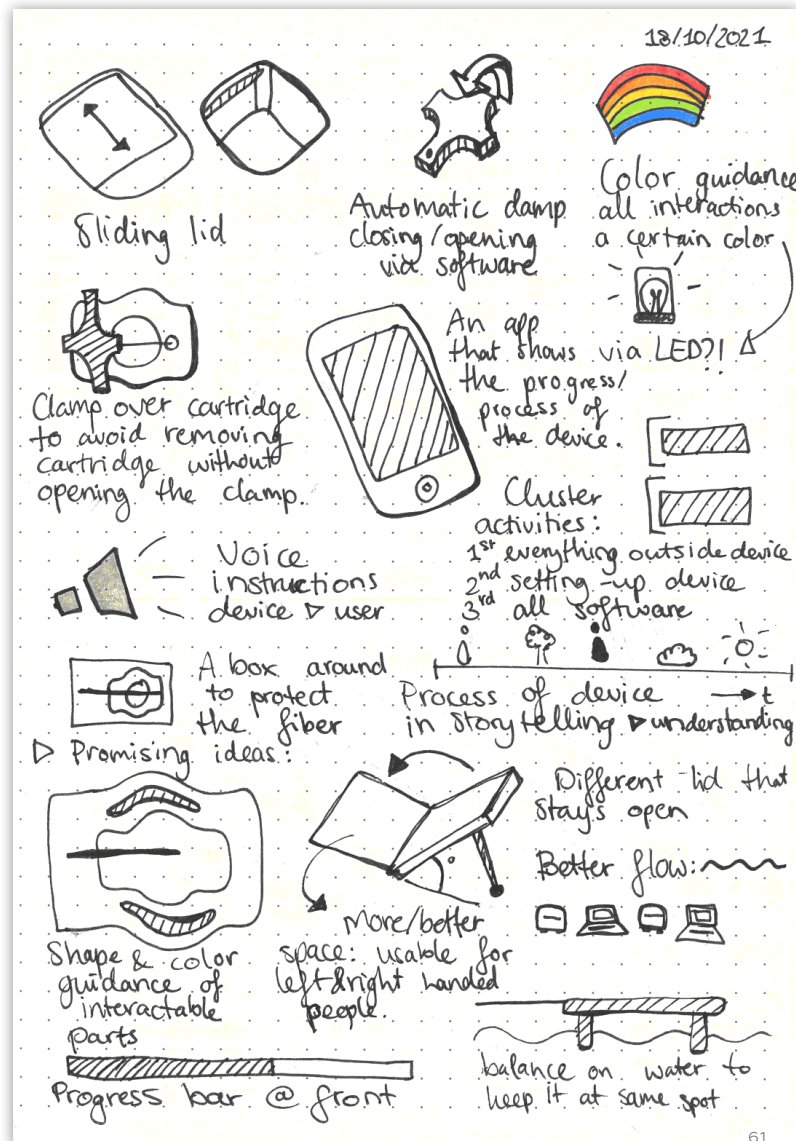 18/10/2021
Sliding lid
Automatic clamp
closing/opening
via software
Color guidance
all interactions
a certain color
via LED?!
Clamp over cartridge
to avoid removing
cartridge without
opening the clamp.
An app
that shows
the progress/
process of
the device.
Cluster
activities:
1st everything outside device
2nd setting-up device
3rd all software
Voice
instructions
device ▷ user
A box around
to protect
the fiber
Process of device → t
in storytelling ▷ understanding
▷ Promising ideas:
Shape & color
guidance of
interactable
parts
More/better
space: usable for
left&right handed
people.
Different lid that
stays open
Better flow:
Progress bar @ front
balance on water to
keep it at same spot
61